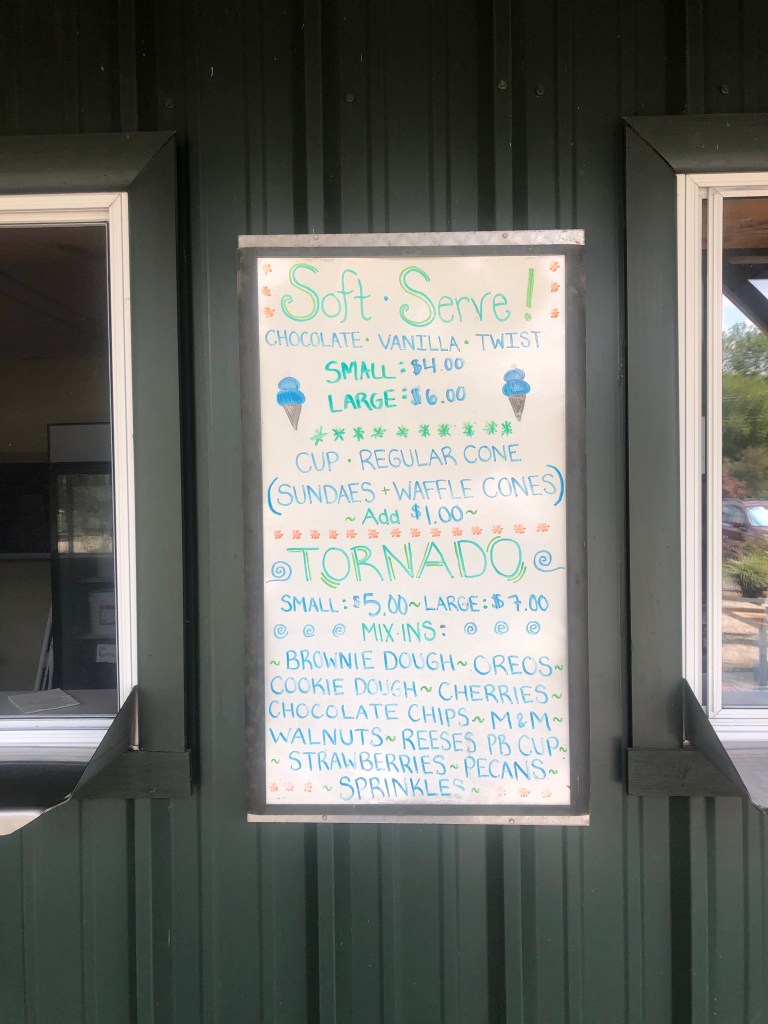 Soft · Serve!
CHOCOLATE · VANILLA · TWIST
SMALL: $4.00
LARGE: $6.00
CUP · REGULAR CONE
(SUNDAES + WAFFLE CONES)
~ Add $1.00 ~
TORNADO
SMALL: $5.00 ~ LARGE: $7.00
MIX·INS:
~ BROWNIE DOUGH ~ OREOS ~
COOKIE DOUGH ~ CHERRIES ~
CHOCOLATE CHIPS ~ M&M ~
WALNUTS ~ REESES PB CUP ~
~ STRAWBERRIES ~ PECANS ~
~ SPRINKLES ~